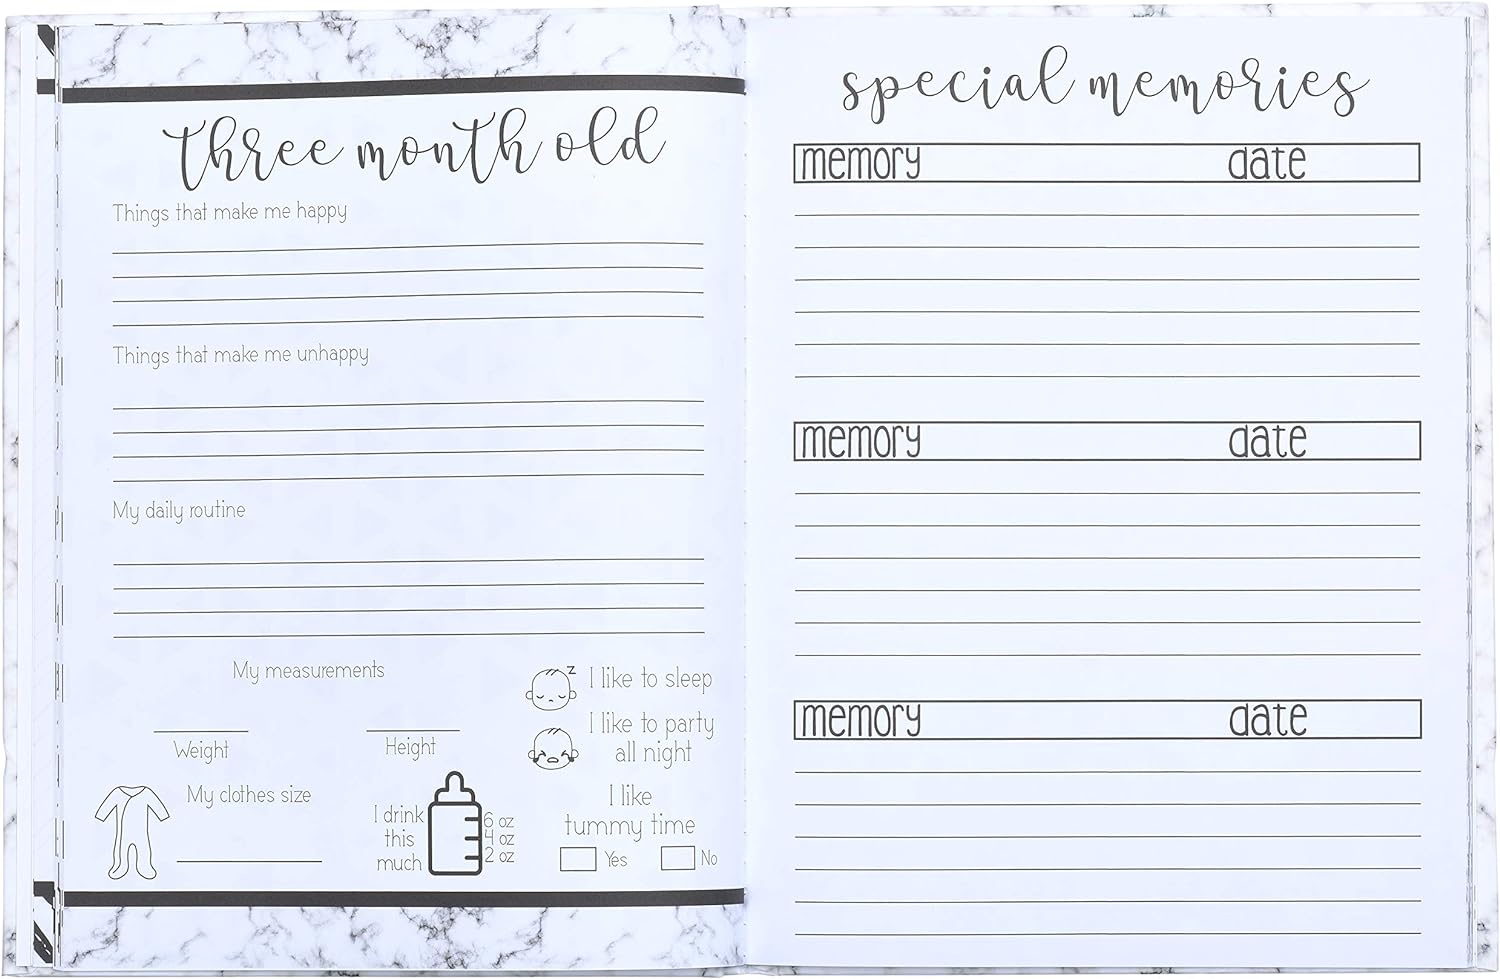 three month old
Things that make me happy
Things that make me unhappy
My daily routine
My measurements
Weight
Height
My clothes size
I drink
this
much
6 oz
4 oz
2 oz
z
I like to sleep
I like to party
all night
I like
tummy time
Yes
No
special memories
memory date
memory date
memory date